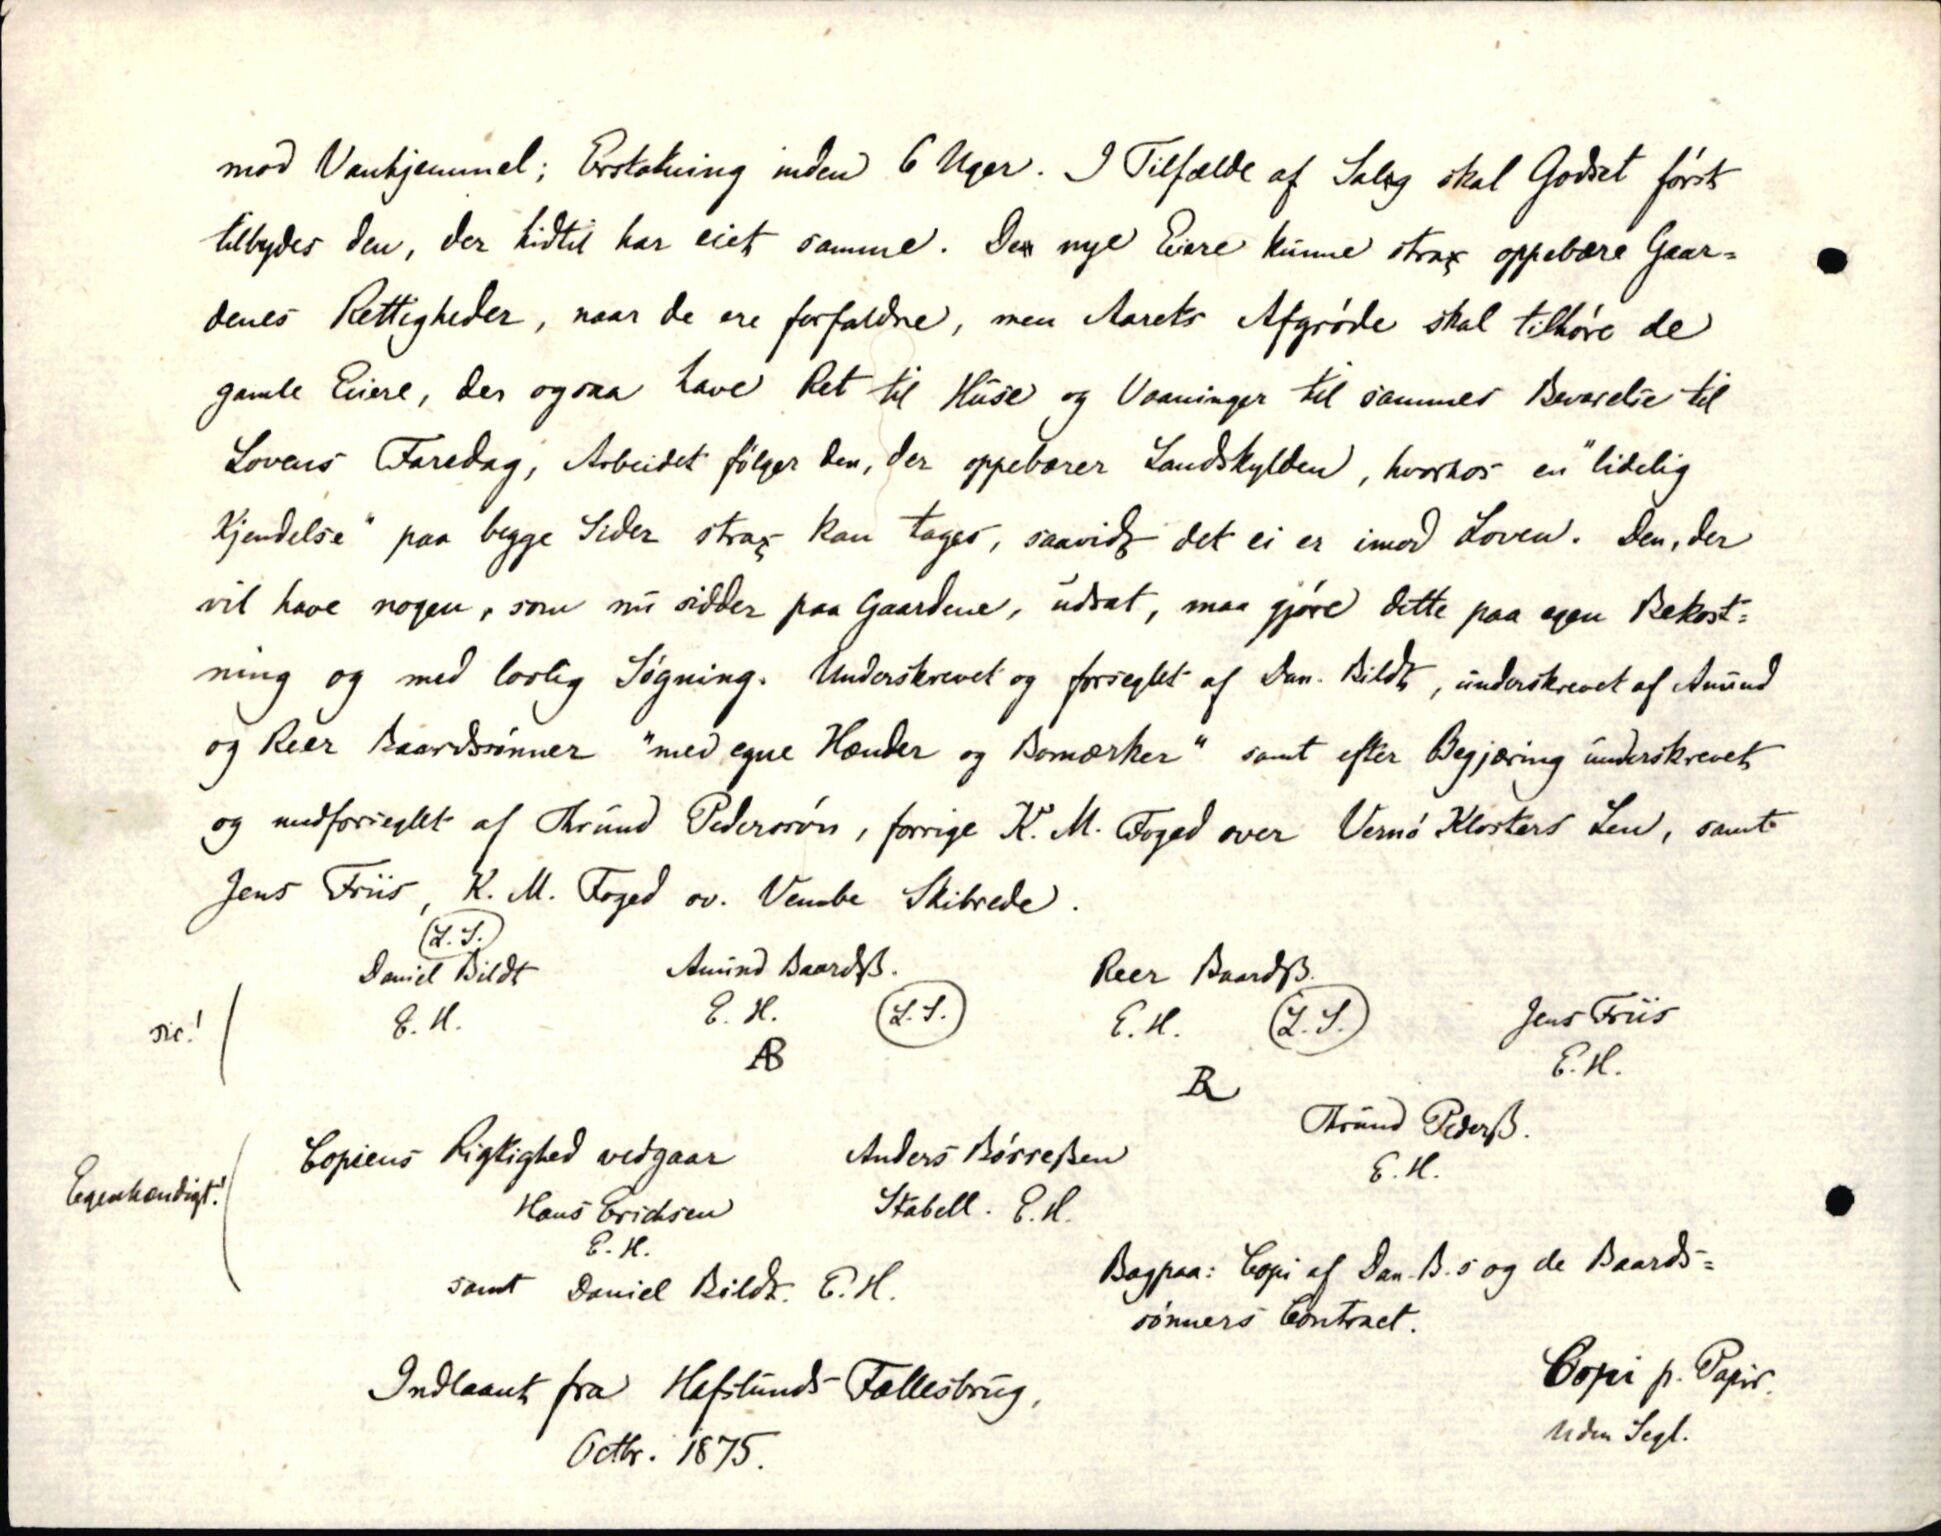 mod Vanhjemmel; Erstatning inden 6 Uger. I Tilfælde af Salg skal Godset først
tilbydes den, der hidtil har eiet samme. De nye Eiere kunne strax oppebære Gaar=
denes Rettigheder, naar de ere forfaldne, men Aarets Afgrøde skal tilhøre de
gamle Eiere, der ogsaa have Ret til Huse og Vaaninger til sammes Bevarelse til
Lovens Faredag, Arbeidet følger den, der oppebærer Landskylden, hvorhos en "lidelig
Kjendelse" paa begge Sider strax kan tages, saavidt det ei er imod Loven. Den, der
vil have nogen, som nu sidder paa Gaardene, udsat, maa gjøre dette paa egen Bekost=
ning og med lovlig Søgning. Underskrevet og forseglet af Dan. Bildt, underskrevet af Amund
og Reer Baardssønner "med egne Hænder og Bomærker" samt efter Begjæring underskrevet
og medforseglet af Thrund Pederssøn, forrige K. M. Foged over Vernø Klosters Len, samt
Jens Friis, K. M. Foged ov. Vembe Skibrede.
(L. S.)
Daniel Bildt Amund Baardsß. Reer Baardsß.
sic! E. H. E. H. (L. S.) E. H. (L. S.) Jens Friis
AB E. H.
R
Thrund Pederß.
Copiens Rigtighed vedgaar Anders Børreßen E. H.
Egenhændigt! Hans Erichsen Stabell. E. H.
E. H.
samt Daniel Bildt. E. H.
Bagpaa: Copi af Dan. B.s og de Baards=
sønners Contract.
Indlaant fra Hafslunds Fællesbrug,
Octbr. 1875.
Copi p. Papir.
Uden Segl.